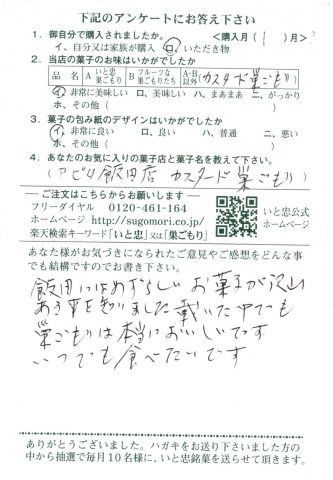 下記のアンケートにお答え下さい
1. 御自分で購入されましたか。 <購入月( 1 )月>
イ、自分又は家族が購入 ロ、いただき物
2. 当店の菓子のお味はいかがでしたか
品名 A いと忠巣ごもり B フルーツな巣ごもりたち A・B以外(カスタード巣ごもり)
イ、非常に美味しい ロ、美味しい ハ、まあまあ ニ、がっかり
ホ、その他( )
3. 菓子の包み紙のデザインはいかがでしたか
イ、非常に良い ロ、良い ハ、普通 ニ、悪い
ホ、その他( )
4. あなたのお気に入りの菓子店と菓子名を教えて下さい。
(アピタ飯田店 カスタード 巣ごもり)
ご注文はこちらからお願いします
フリーダイヤル 0120-461-164
ホームページ http://sugomori.co.jp/
楽天検索キーワード「いと忠」又は「巣ごもり」
いと忠公式
ホームページ
あなた様がお気づきになられたご意見やご感想をどんな事
でも結構ですのでお書き下さい。
飯田にはめずらしいお菓子が沢山
ある事を知りました 戴いた中でも
巣ごもりは本当においしいです
いつでも食べたいです
ありがとうございました。ハガキをお送り下さいました方の
中から抽選で毎月10名様に、いと忠銘菓を送らせて頂きます。